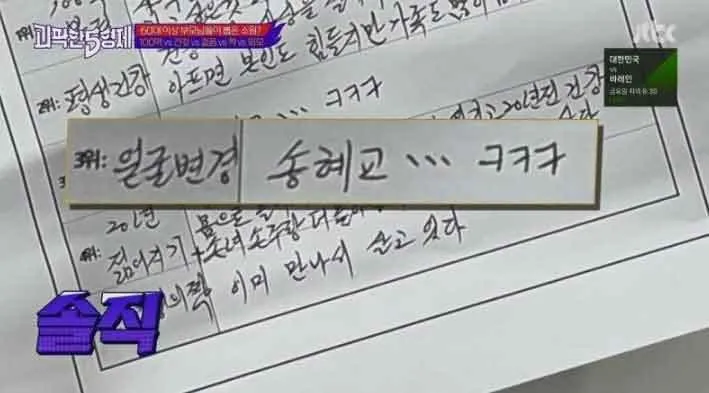 괴팍한5형제
60대 이상 부모님들이 뽑은 소원?
100억 vs 건강 vs 젊음 vs 짝 vs 외모
JTBC
대한민국
vs
바레인
금요일 저녁 6:30
2위: 평생건강 아프면 본인도 힘들지만 가족도
... ㅋㅋㅋ
20년전 건강
3위: 얼굴변경 송혜교... ㅋㅋㅋ
20년 몸으로
4위: 젊어지기 + 손녀 손주랑 더
이미 만나서 살고 있다
솔직